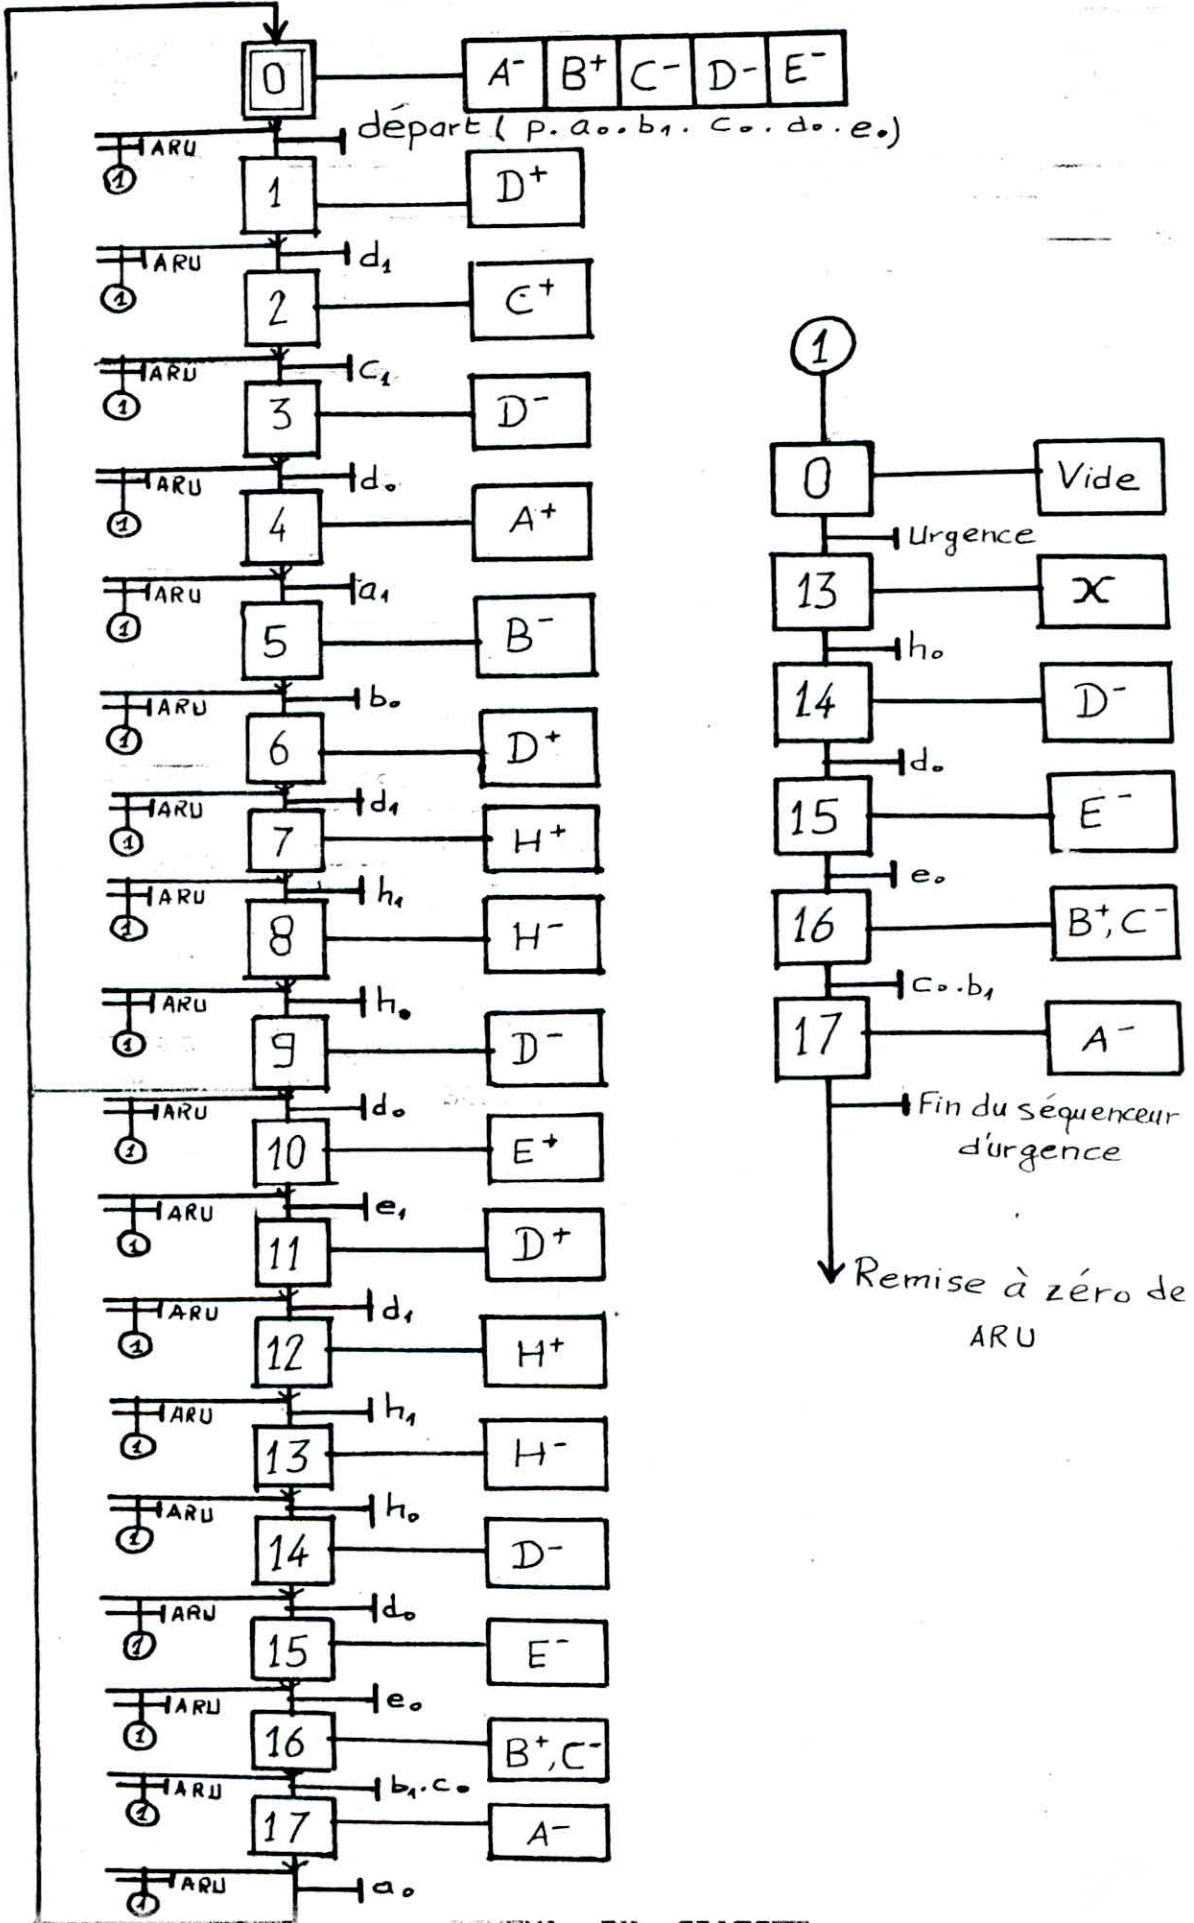 0 A⁻ B⁺ C⁻ D⁻ E⁻
ARU départ ( p. a₀. b₁. c₀. d₀. e₀)
1
1 D⁺
ARU d₁
1
2 C⁺
ARU c₁
1
3 D⁻
ARU d₀
1
4 A⁺
ARU a₁
1
5 B⁻
ARU b₀
1
6 D⁺
ARU d₁
1
7 H⁺
ARU h₁
1
8 H⁻
ARU h₀
1
9 D⁻
ARU d₀
1
10 E⁺
ARU e₁
1
11 D⁺
ARU d₁
1
12 H⁺
ARU h₁
1
13 H⁻
ARU h₀
1
14 D⁻
ARU d₀
1
15 E⁻
ARU e₀
1
16 B⁺, C⁻
ARU b₁. c₀
1
17 A⁻
ARU a₀
1
1
0 Vide
Urgence
13 x
h₀
14 D⁻
d₀
15 E⁻
e₀
16 B⁺, C⁻
c₀. b₁
17 A⁻
Fin du séquenceur
d'urgence
Remise à zéro de
ARU